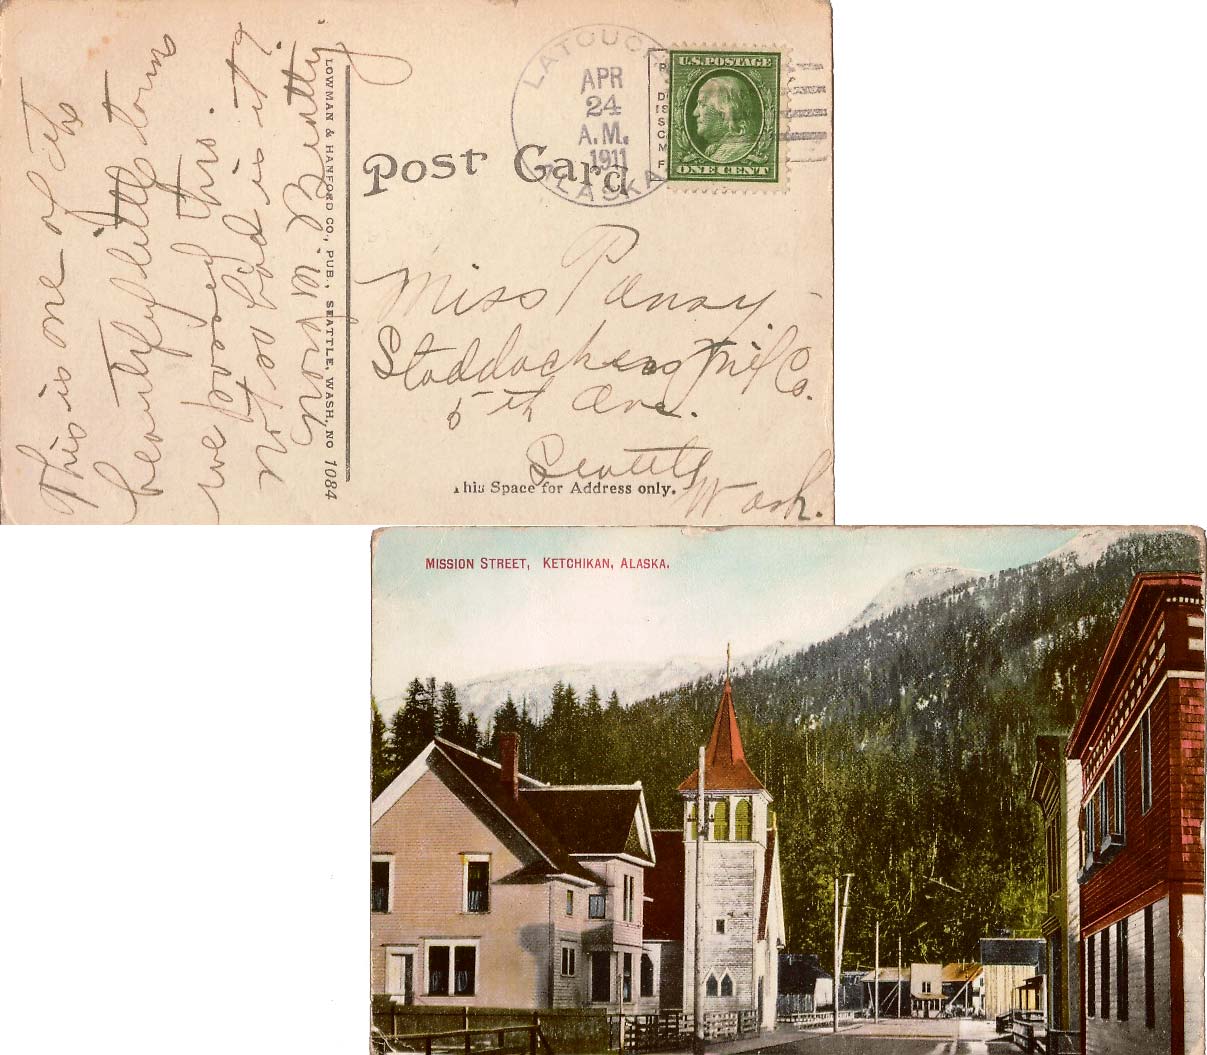 This is one of the
beautiful little towns
we passed this.
not so bad is it?
Beatty
LOWMAN & HANFORD CO., PUB., SEATTLE, WASH, NO 1084
Post Card
LATOUCHE
APR
24
A.M.
1911
ALASKA
U.S. POSTAGE
ONE CENT
Miss Pansy
Mil Co.
5th Ave.
Seattle
Wash.
his Space for Address only.
MISSION STREET, KETCHIKAN, ALASKA.